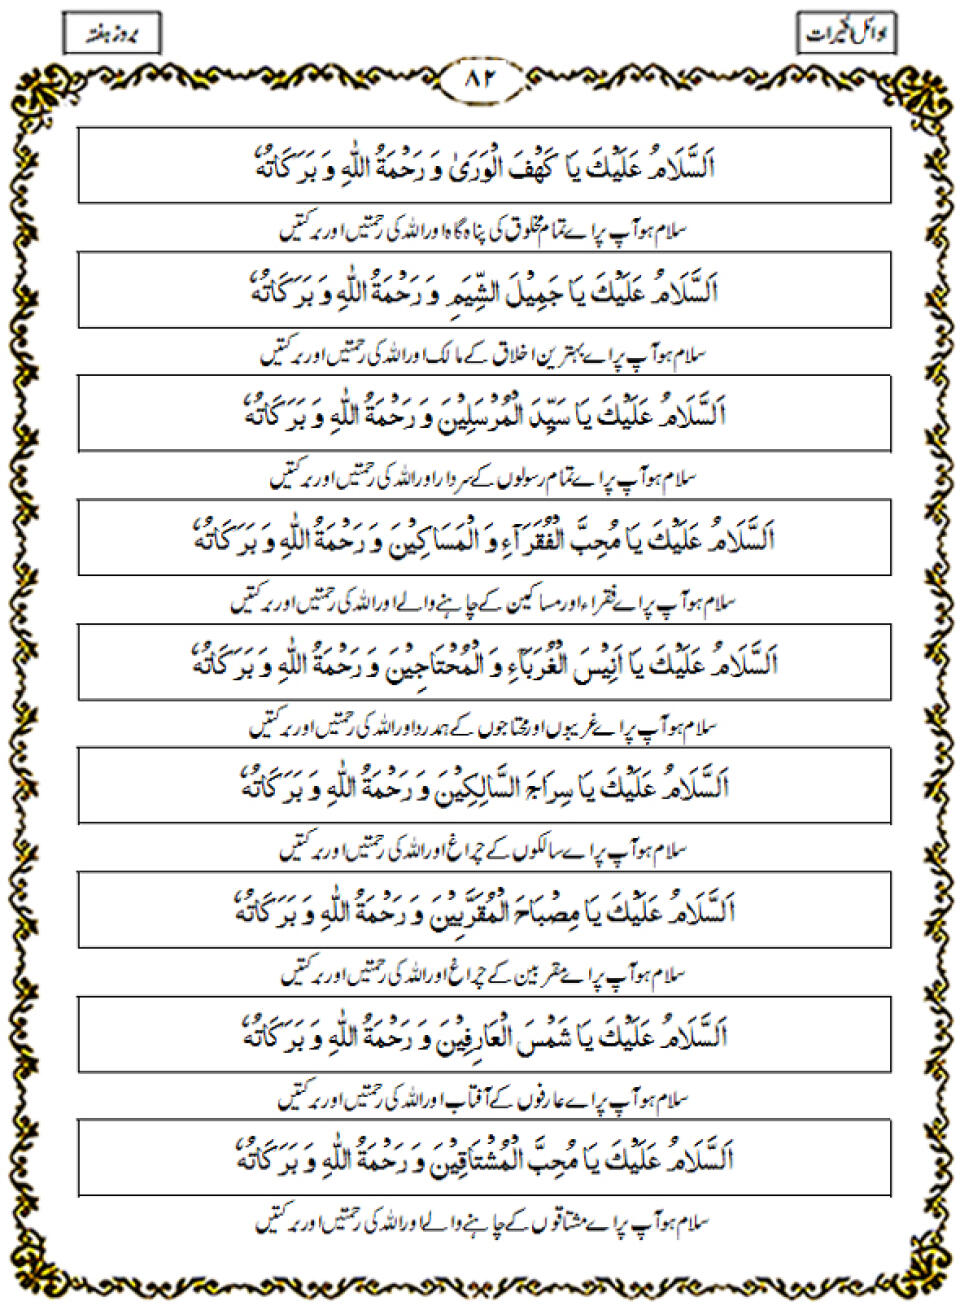 اوائل الخیرات
بروز ہفتہ
۸۲
اَلسَّلَامُ عَلَيْكَ يَا كَهْفَ الْوَرَىٰ وَ رَحْمَةُ اللّٰهِ وَ بَرَكَاتُهٗ
سلام ہو آپ پر اے تمام مخلوق کی پناہ گاہ اور اللہ کی رحمتیں اور برکتیں
اَلسَّلَامُ عَلَيْكَ يَا جَمِيْلَ الشِّيَمِ وَ رَحْمَةُ اللّٰهِ وَ بَرَكَاتُهٗ
سلام ہو آپ پر اے بہترین اخلاق کے مالک اور اللہ کی رحمتیں اور برکتیں
اَلسَّلَامُ عَلَيْكَ يَا سَيِّدَ الْمُرْسَلِيْنَ وَ رَحْمَةُ اللّٰهِ وَ بَرَكَاتُهٗ
سلام ہو آپ پر اے تمام رسولوں کے سردار اور اللہ کی رحمتیں اور برکتیں
اَلسَّلَامُ عَلَيْكَ يَا مُحِبَّ الْفُقَرَآءِ وَ الْمَسَاكِيْنَ وَ رَحْمَةُ اللّٰهِ وَ بَرَكَاتُهٗ
سلام ہو آپ پر اے فقراء اور مساکین کے چاہنے والے اور اللہ کی رحمتیں اور برکتیں
اَلسَّلَامُ عَلَيْكَ يَا اَنِيْسَ الْغُرَبَآءِ وَ الْمُحْتَاجِيْنَ وَ رَحْمَةُ اللّٰهِ وَ بَرَكَاتُهٗ
سلام ہو آپ پر اے غریبوں اور محتاجوں کے ہمدرد اور اللہ کی رحمتیں اور برکتیں
اَلسَّلَامُ عَلَيْكَ يَا سِرَاجَ السَّالِكِيْنَ وَ رَحْمَةُ اللّٰهِ وَ بَرَكَاتُهٗ
سلام ہو آپ پر اے سالکوں کے چراغ اور اللہ کی رحمتیں اور برکتیں
اَلسَّلَامُ عَلَيْكَ يَا مِصْبَاحَ الْمُقَرَّبِيْنَ وَ رَحْمَةُ اللّٰهِ وَ بَرَكَاتُهٗ
سلام ہو آپ پر اے مقربین کے چراغ اور اللہ کی رحمتیں اور برکتیں
اَلسَّلَامُ عَلَيْكَ يَا شَمْسَ الْعَارِفِيْنَ وَ رَحْمَةُ اللّٰهِ وَ بَرَكَاتُهٗ
سلام ہو آپ پر اے عارفوں کے آفتاب اور اللہ کی رحمتیں اور برکتیں
اَلسَّلَامُ عَلَيْكَ يَا مُحِبَّ الْمُشْتَاقِيْنَ وَ رَحْمَةُ اللّٰهِ وَ بَرَكَاتُهٗ
سلام ہو آپ پر اے مشتاقوں کے چاہنے والے اور اللہ کی رحمتیں اور برکتیں